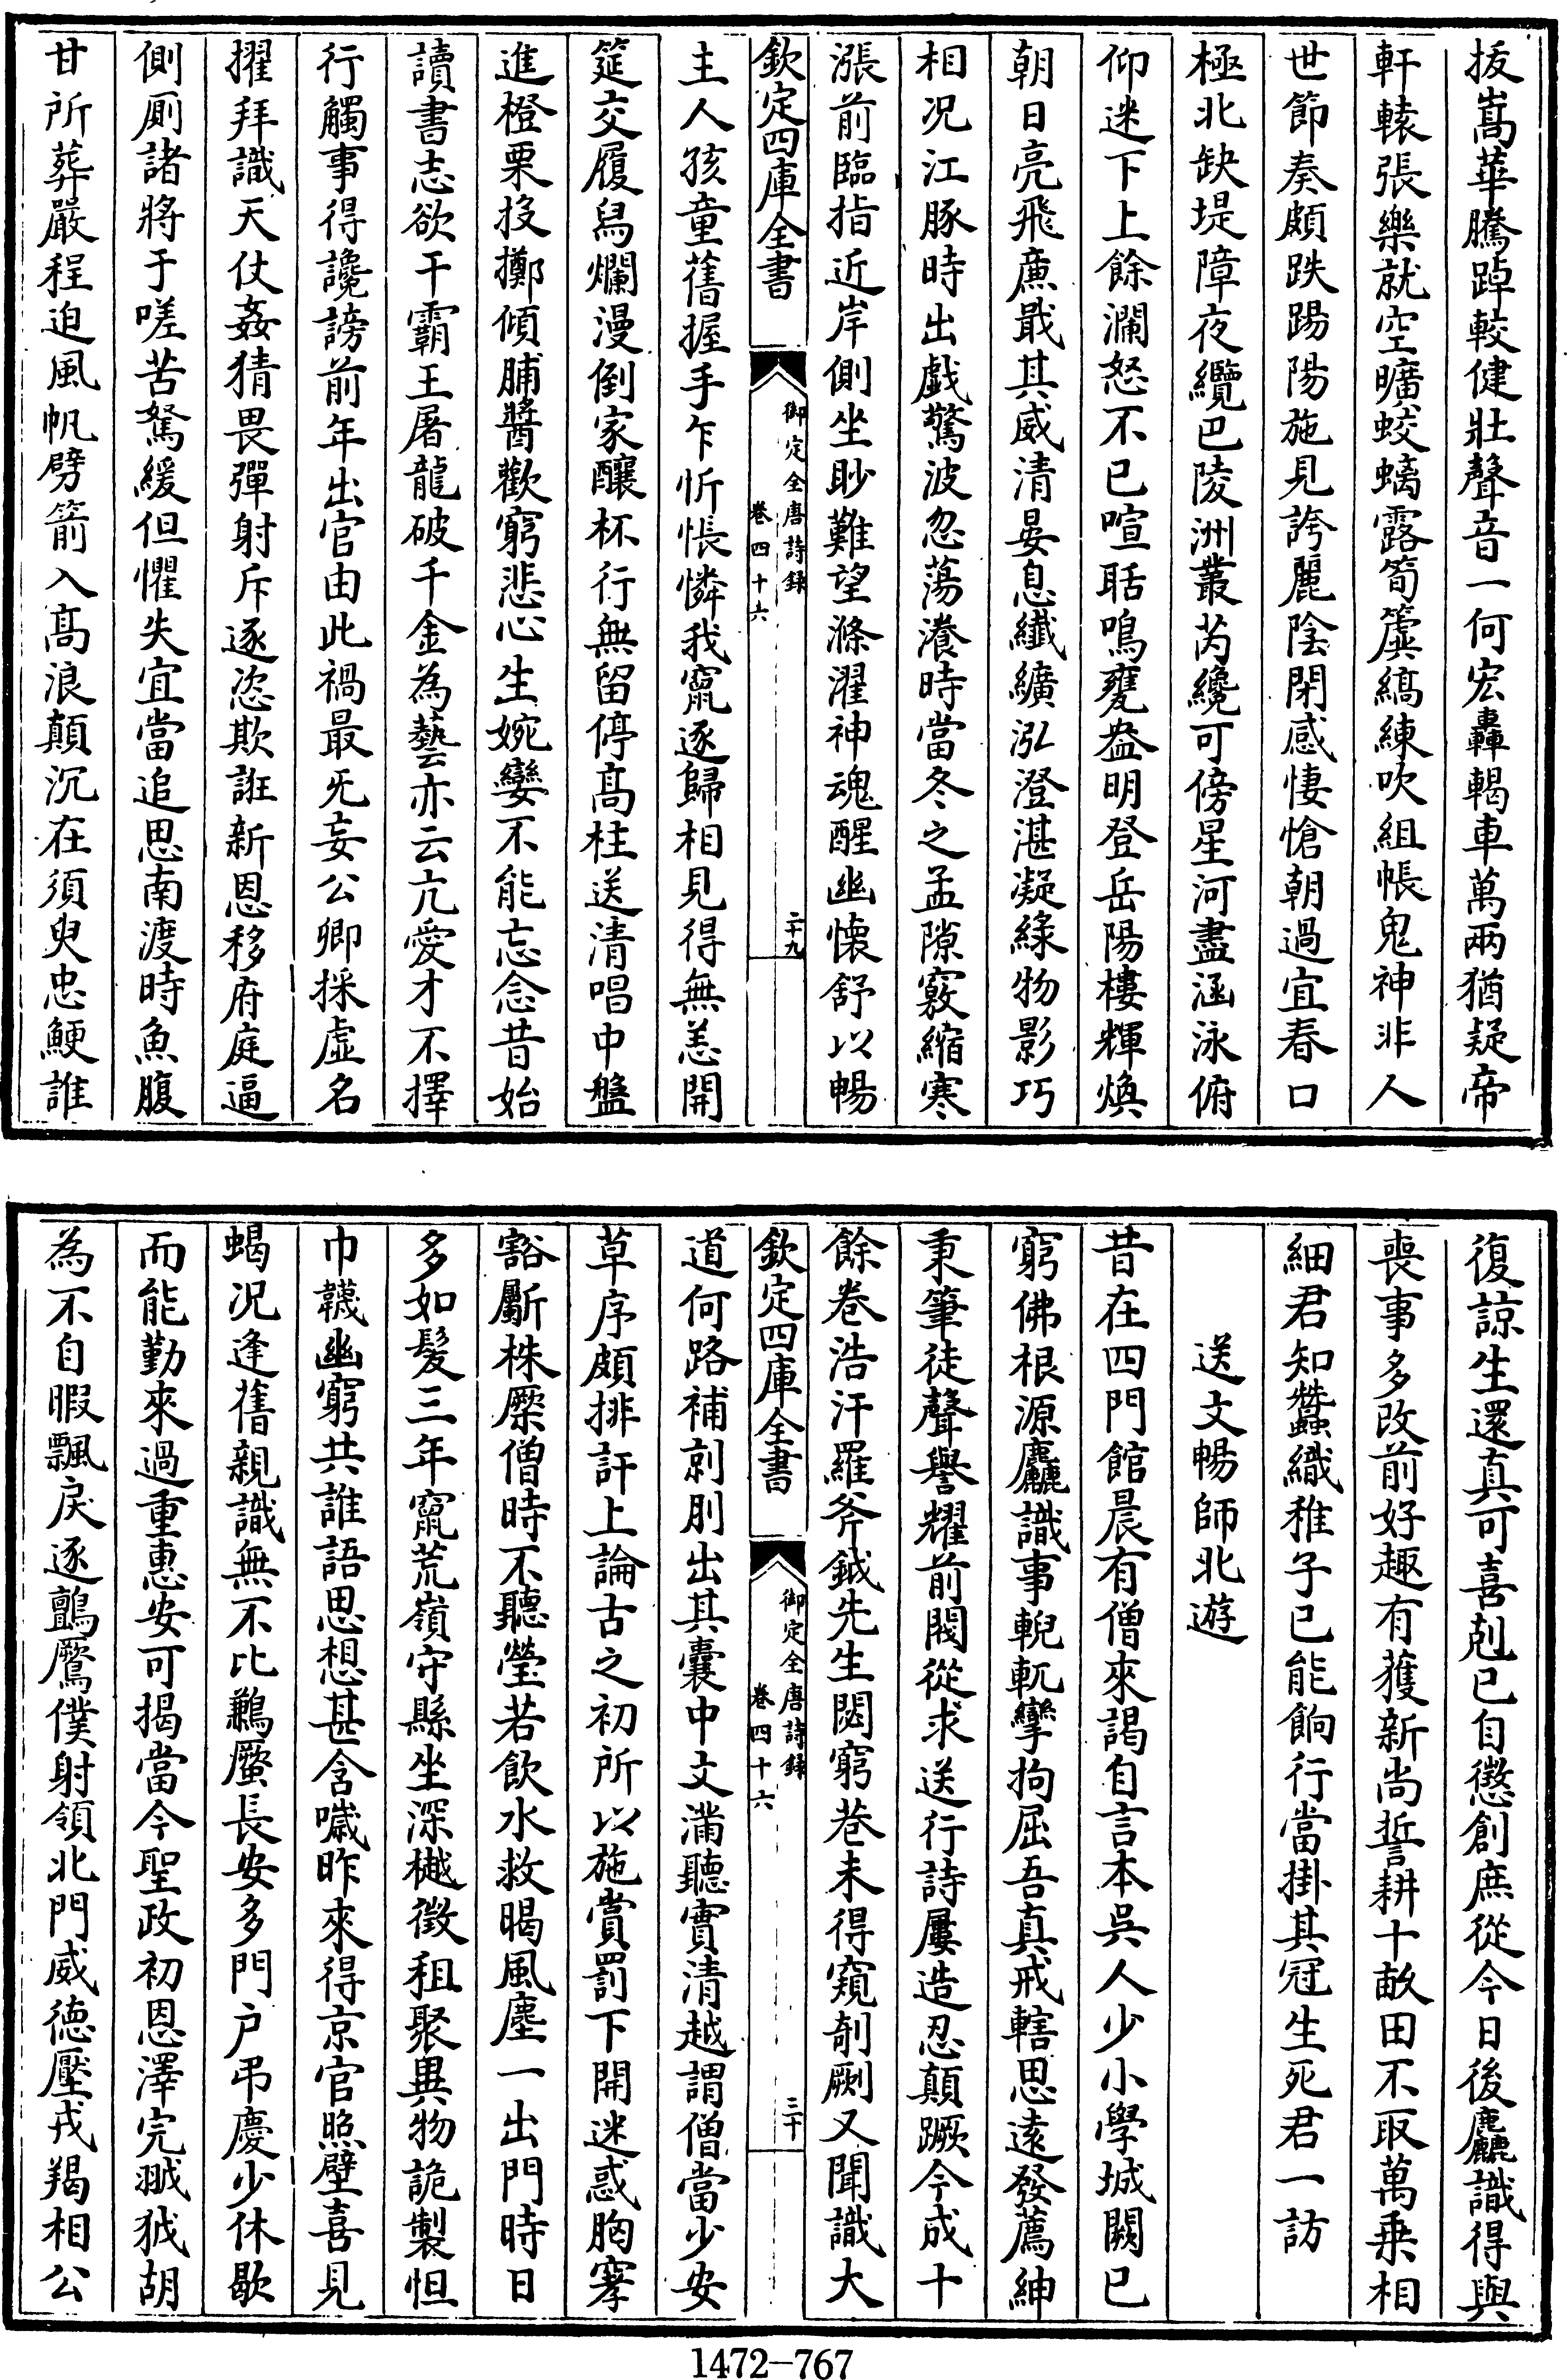 拔嵩華騰踔較健壯聲音一何宏轟輵車萬兩猶疑帝
軒轅張樂就空曠蛟螭露筍簴縞練吹組帳鬼神非人
世節奏頗跌踼陽施見誇麗陰閉感悽愴朝過宜春口
極北缺堤障夜纜巴陵洲叢芮纔可傍星河盡涵泳俯
仰迷下上餘瀾怒不已喧聒鳴甕盎明登岳陽樓輝煥
朝日亮飛廉戢其威清晏息纖纊泓澄湛凝綠物影巧
相况江豚時出戱驚波忽蕩瀁時當冬之孟隙竅縮寒
漲前臨指近岸側坐眇難望滌濯神魂醒幽懐舒以暢
欽定四庫全書
御定全唐詩録
卷四十六
二十九
主人孩童舊握手乍忻悵憐我竄逐歸相見得無恙開
筵交履舄爛漫倒家釀杯行無留停髙柱送清唱中盤
進橙栗投擲傾脯醬歡窮悲心生婉孌不能忘念昔始
讀書志欲干霸王屠龍破千金為藝亦云亢愛才不擇
行觸事得讒謗前年出官由此禍最旡妄公卿採虚名
擢拜識天仗姦猜畏彈射斥逐恣欺誑新恩移府庭逼
側厠諸將于嗟苦駑緩但懼失宜當追思南渡時魚腹
甘所葬嚴程迫風帆劈箭入髙浪顛沉在須臾忠鯁誰
復諒生還真可喜剋已自懲創庶從今日後麤識得與
喪事多改前好趣有獲新尚誓耕十畝田不取萬乗相
細君知蠶織稚子已能餉行當掛其冠生死君一訪
送文暢師北遊
昔在四門館晨有僧來謁自言本吳人少小學城闕已
窮佛根源麤識事輗軏攣拘屈吾真戒轄思遠發薦紳
秉筆徒聲譽耀前閥從求送行詩屢造忍顛蹶今成十
餘卷浩汗羅斧鉞先生閟窮巷未得窺剞劂又聞識大
道何路補剠刖出其囊中文滿聽實清越謂僧當少安
草序頗排訐上論古之初所以施賞罰下開迷惑胸窙
豁斸株橜僧時不聽瑩若飲水救暍風塵一出門時日
多如髮三年竄荒嶺守縣坐深樾徵租聚異物詭製怛
巾韈幽窮共誰語思想甚含噦昨來得京官照壁喜見
蝎况逢舊親識無不比鶼蟨長安多門户弔慶少休歇
而能勤來過重惠安可揭當今聖政初恩澤完𤟎狘胡
為不自暇飄戾逐鸇鷢僕射領北門威徳壓戎羯相公
欽定四庫全書
御定全唐詩録
卷四十六
三十
1472-767